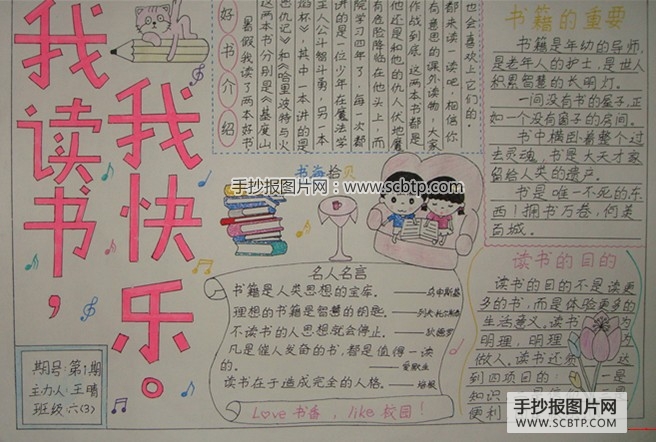 我读书，
我快乐。
好书介绍
暑假我读了两本好书
这两本书分别是《基度山
仇记》和《哈里波特与火
焰杯》，其中一本讲的是
主人公斗智斗勇，另一本
讲的是一位少年在魔法学
院学习四年了，每一次都
有危险降临在他头上，而
他还是和他的仇人伏地魔
作战到底。这两本书都是
有意思的课外读物，大家
都来读一读吧，相信你
也会喜欢上它们的。
书籍的重要
书籍是年幼的导师，
是老年人的护士，是世人
积累智慧的长明灯。
一间没有书的屋子，正
如一个没有窗子的房间。
书中横卧着整个过
去灵魂，书是大天才家
留给人类的遗产。
书是唯一不死的东
西！拥书万卷，何英
百城。
书海拾贝
手抄报图片网：www.scbtp.com
名人名言
书籍是人类思想的宝库。——乌申斯基
理想的书籍是智慧的钥匙。——列夫·托尔斯泰
不读书的人思想就会停止。——狄德罗
凡是催人发奋的书，都是值得一读
的。——爱默生
读书在于造成完全的人格。——培根
Love 书香，like 校园！
读书的目的
读书的目的不是读更
多的书，而是体验更多的
生活意义。读书 为
明理，明理 为
做人。读书还须 达
到四项目的： 一是
知识
便利
期号：第1期
主力人：王晴
班级：六(3)
手抄报图片网
WWW.SCBTP.COM